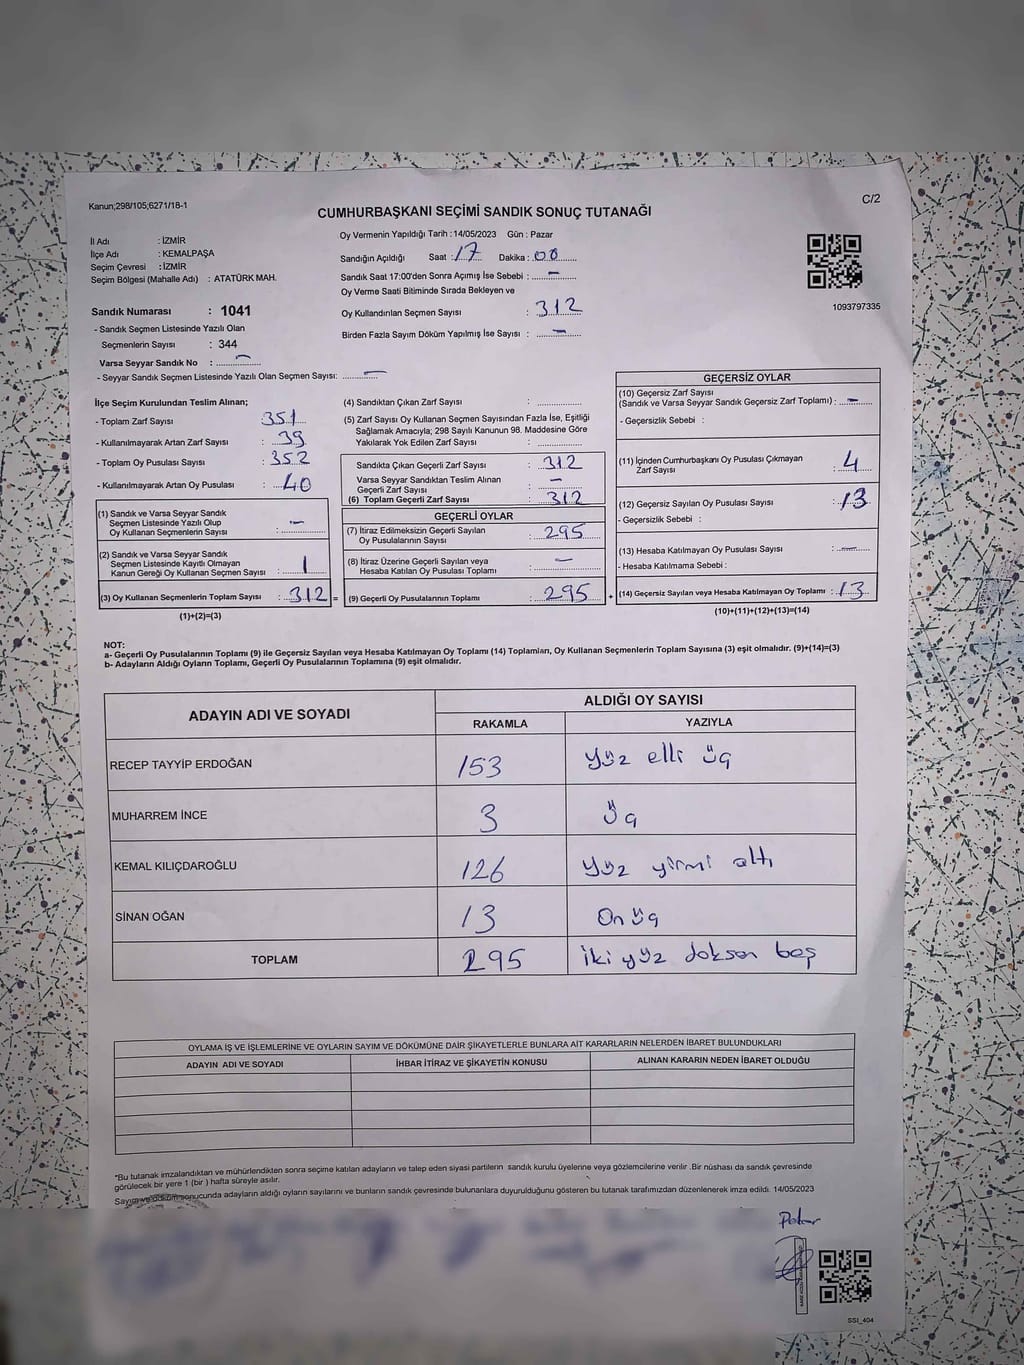 Kanun;298/105;6271/18-1
C/2
CUMHURBAŞKANI SEÇİMİ SANDIK SONUÇ TUTANAĞI
Oy Vermenin Yapıldığı Tarih : 14/05/2023 Gün : Pazar
İl Adı : İZMİR
İlçe Adı : KEMALPAŞA
Seçim Çevresi : İZMİR
Seçim Bölgesi (Mahalle Adı) : ATATÜRK MAH.
Sandığın Açıldığı Saat : 17 Dakika : 00
Sandık Saat 17:00'den Sonra Açımış İse Sebebi : -
Oy Verme Saati Bitiminde Sırada Bekleyen ve
Oy Kullandırılan Seçmen Sayısı : 312
Birden Fazla Sayım Döküm Yapılmış İse Sayısı : -
1093797335
Sandık Numarası : 1041
- Sandık Seçmen Listesinde Yazılı Olan
Seçmenlerin Sayısı : 344
Varsa Seyyar Sandık No : -
- Seyyar Sandık Seçmen Listesinde Yazılı Olan Seçmen Sayısı: -
İlçe Seçim Kurulundan Teslim Alınan;
- Toplam Zarf Sayısı : 351
- Kullanılmayarak Artan Zarf Sayısı : 39
- Toplam Oy Pusulası Sayısı : 352
- Kullanılmayarak Artan Oy Pusulası : 40
(1) Sandık ve Varsa Seyyar Sandık
Seçmen Listesinde Yazılı Olup
Oy Kullanan Seçmenlerin Sayısı : -
(2) Sandık ve Varsa Seyyar Sandık
Seçmen Listesinde Kayıtlı Olmayan
Kanun Gereği Oy Kullanan Seçmen Sayısı : 1
(3) Oy Kullanan Seçmenlerin Toplam Sayısı : 312 =
(1)+(2)=(3)
(4) Sandıktan Çıkan Zarf Sayısı :
(5) Zarf Sayısı Oy Kullanan Seçmen Sayısından Fazla İse, Eşitliği
Sağlamak Amacıyla; 298 Sayılı Kanunun 98. Maddesine Göre
Yakılarak Yok Edilen Zarf Sayısı :
Sandıkta Çıkan Geçerli Zarf Sayısı : 312
Varsa Seyyar Sandıktan Teslim Alınan
Geçerli Zarf Sayısı : -
(6) Toplam Geçerli Zarf Sayısı : 312
GEÇERLİ OYLAR
(7) İtiraz Edilmeksizin Geçerli Sayılan
Oy Pusulalarının Sayısı : 295
(8) İtiraz Üzerine Geçerli Sayılan veya
Hesaba Katılan Oy Pusulası Toplamı : -
(9) Geçerli Oy Pusulalarının Toplamı : 295 +
GEÇERSİZ OYLAR
(10) Geçersiz Zarf Sayısı
(Sandık ve Varsa Seyyar Sandık Geçersiz Zarf Toplamı) : -
- Geçersizlik Sebebi :
(11) İçinden Cumhurbaşkanı Oy Pusulası Çıkmayan
Zarf Sayısı : 4
(12) Geçersiz Sayılan Oy Pusulası Sayısı : 13
- Geçersizlik Sebebi :
(13) Hesaba Katılmayan Oy Pusulası Sayısı : -
- Hesaba Katılmama Sebebi :
(14) Geçersiz Sayılan veya Hesaba Katılmayan Oy Toplamı : 13
(10)+(11)+(12)+(13)=(14)
NOT:
a- Geçerli Oy Pusulalarının Toplamı (9) ile Geçersiz Sayılan veya Hesaba Katılmayan Oy Toplamı (14) Toplamları, Oy Kullanan Seçmenlerin Toplam Sayısına (3) eşit olmalıdır. (9)+(14)=(3)
b- Adayların Aldığı Oyların Toplamı, Geçerli Oy Pusulalarının Toplamına (9) eşit olmalıdır.
ADAYIN ADI VE SOYADI ALDIĞI OY SAYISI
RAKAMLA YAZIYLA
RECEP TAYYİP ERDOĞAN 153 Yüz elli üç
MUHARREM İNCE 3 Üç
KEMAL KILIÇDAROĞLU 126 Yüz yirmi altı
SİNAN OĞAN 13 On üç
TOPLAM 295 İki yüz doksan beş
OYLAMA İŞ VE İŞLEMLERİNE VE OYLARIN SAYIM VE DÖKÜMÜNE DAİR ŞİKAYETLERLE BUNLARA AİT KARARLARIN NELERDEN İBARET BULUNDUKLARI
ADAYIN ADI VE SOYADI İHBAR İTİRAZ VE ŞİKAYETİN KONUSU ALINAN KARARIN NEDEN İBARET OLDUĞU
*Bu tutanak imzalandıktan ve mühürlendikten sonra seçime katılan adayların ve talep eden siyasi partilerin sandık kurulu üyelerine veya gözlemcilerine verilir .Bir nüshası da sandık çevresinde
görülecek bir yere 1 (bir ) hafta süreyle asılır.
Sayım ve döküm sonucunda adayların aldığı oyların sayılarını ve bunların sandık çevresinde bulunanlara duyurulduğunu gösteren bu tutanak tarafımızdan düzenlenerek imza edildi. 14/05/2023
SSI_404